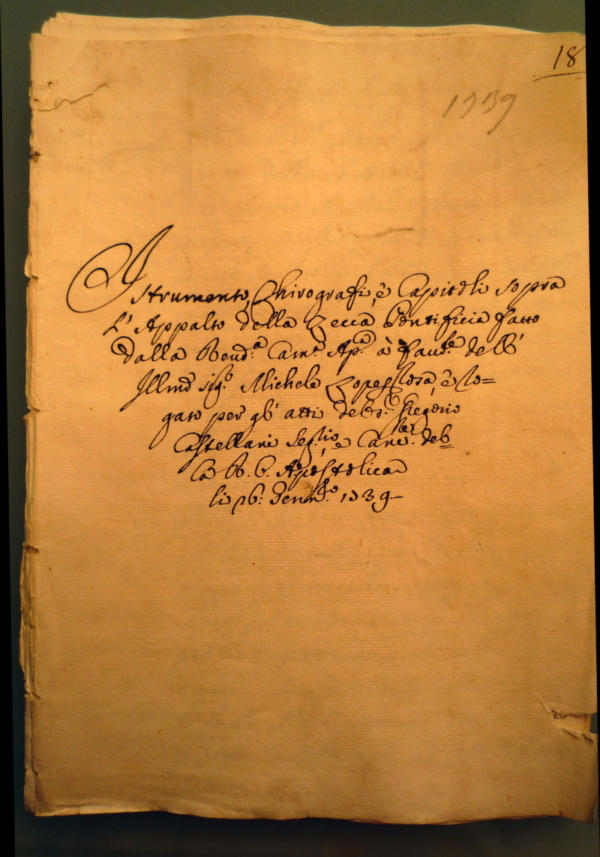 18
1739
Istrumento, Chirografi, è Capitoli sopra
L'Appalto della Zecca Pontificia fatto
dalla Rend.ª Cam.ª Ap.ª à fau.re dell'
Illmo Sig.r Michele Lopez Rosa, è Ro=
gato per gl'atti del Sig.r Gregorio
Castellani Seg.rio, e Canc.re del=
la R. C. Apostolica
li 26. Genn.ro 1739